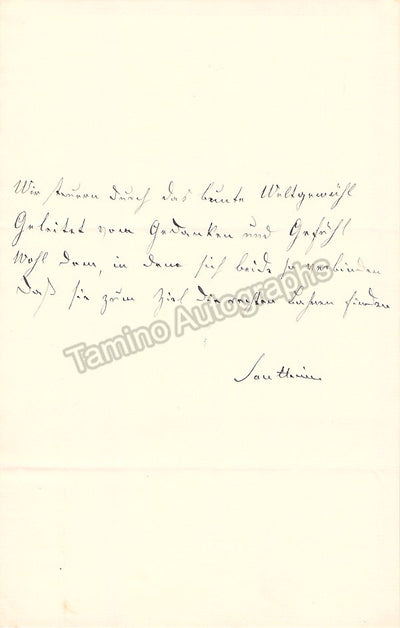 Wir steuern durch das bunte Weltgewühl
Geleitet vom Gedanken und Gefühl
Wohl dem, in dem sich beide so verbinden
Daß sie zum Ziel die rechten Bahnen finden
Tamino Autographs
Sontheim